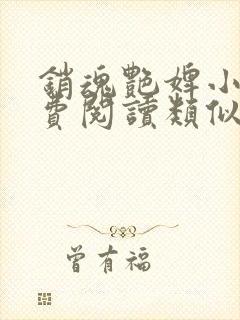 銷魂艷婢小
費閱讀類似
曾有福